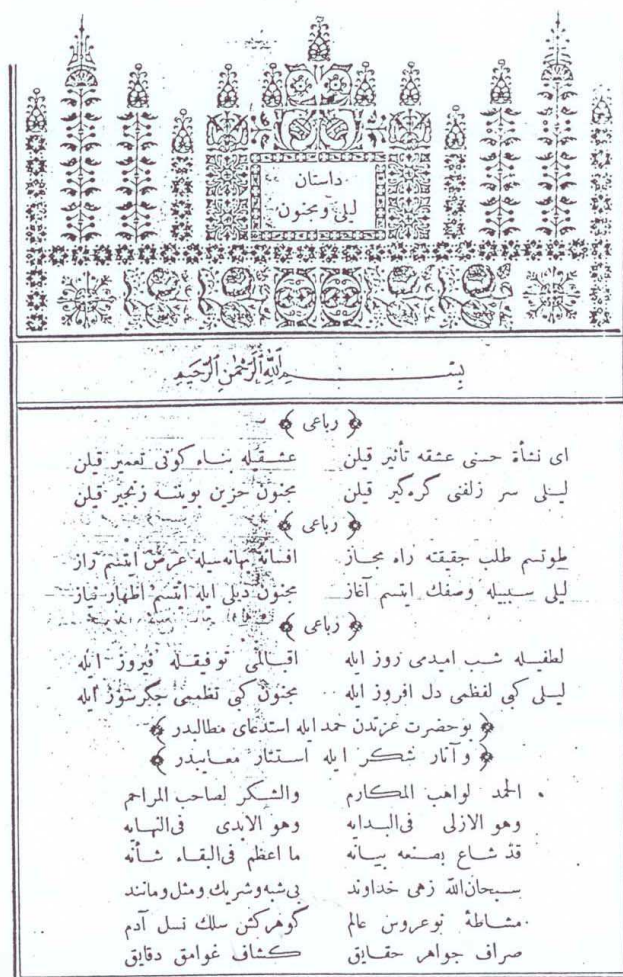 داستان
ليلى ومجنون
بسم الله الرحمن الرحيم
﴿ رباعى ﴾
اى نشأة حسنى عشقه تأثير قيلن عشقيله بناء كونى تعمير قيلن
ليلى سر زلفنى كره كير قيلن مجنون حزين بويننه زنجير قيلن
﴿ رباعى ﴾
طوتسم طلب حقيقته راه مجاز افسانه بهانه سيله عرض ايتسم راز
ليلى سببيله وصفك ايتسم آغاز مجنون ديلى ايله ايتسم اظهار نياز
﴿ رباعى ﴾
لطفيله شب اميدمى روز ايله اقبالمى توفيقله فيروز ايله
ليلى كبى لفظمى دل افروز ايله مجنون كبى نظممى جكرسوز ايله
﴿ بوحضرت عزتدن حمد ايله استدعاى مطالبدر ﴾
﴿ وآثار شكر ايله استئثار معايبدر ﴾
الحمد لواهب المكارم والشكر لصاحب المراحم
وهو الازلى فى البدايه وهو الابدى فى النهايه
قد شاع بصنعه بيانه ما اعظم فى البقاء شأنه
سبحان الله زهى خداوند بى شبه وشريك ومثل ومانند
مشاطۀ نوعروس عالم كوهركش سلك نسل آدم
صراف جواهر حقايق كشاف غوامق دقايق